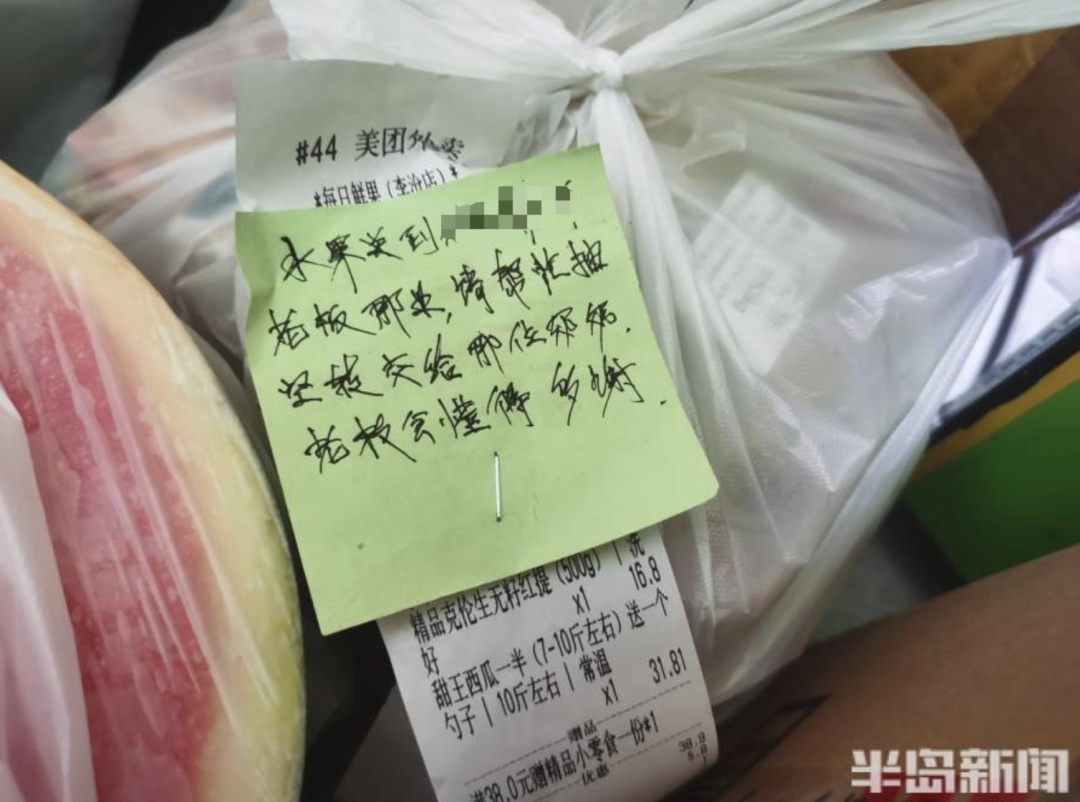 #44 美团外卖
*每日鲜果(李沧店)*
水果送到
老板那里,请帮忙抽
空转交给那位
老板会懂得 多谢.
精品克伦生无籽红提(500g) | 洗
好 x1 16.8
甜王西瓜一半(7-10斤左右)送一个
勺子 | 10斤左右 | 常温
x1 31.81
赠品
满38.0元赠精品小零食一份*1
优惠
半岛新闻